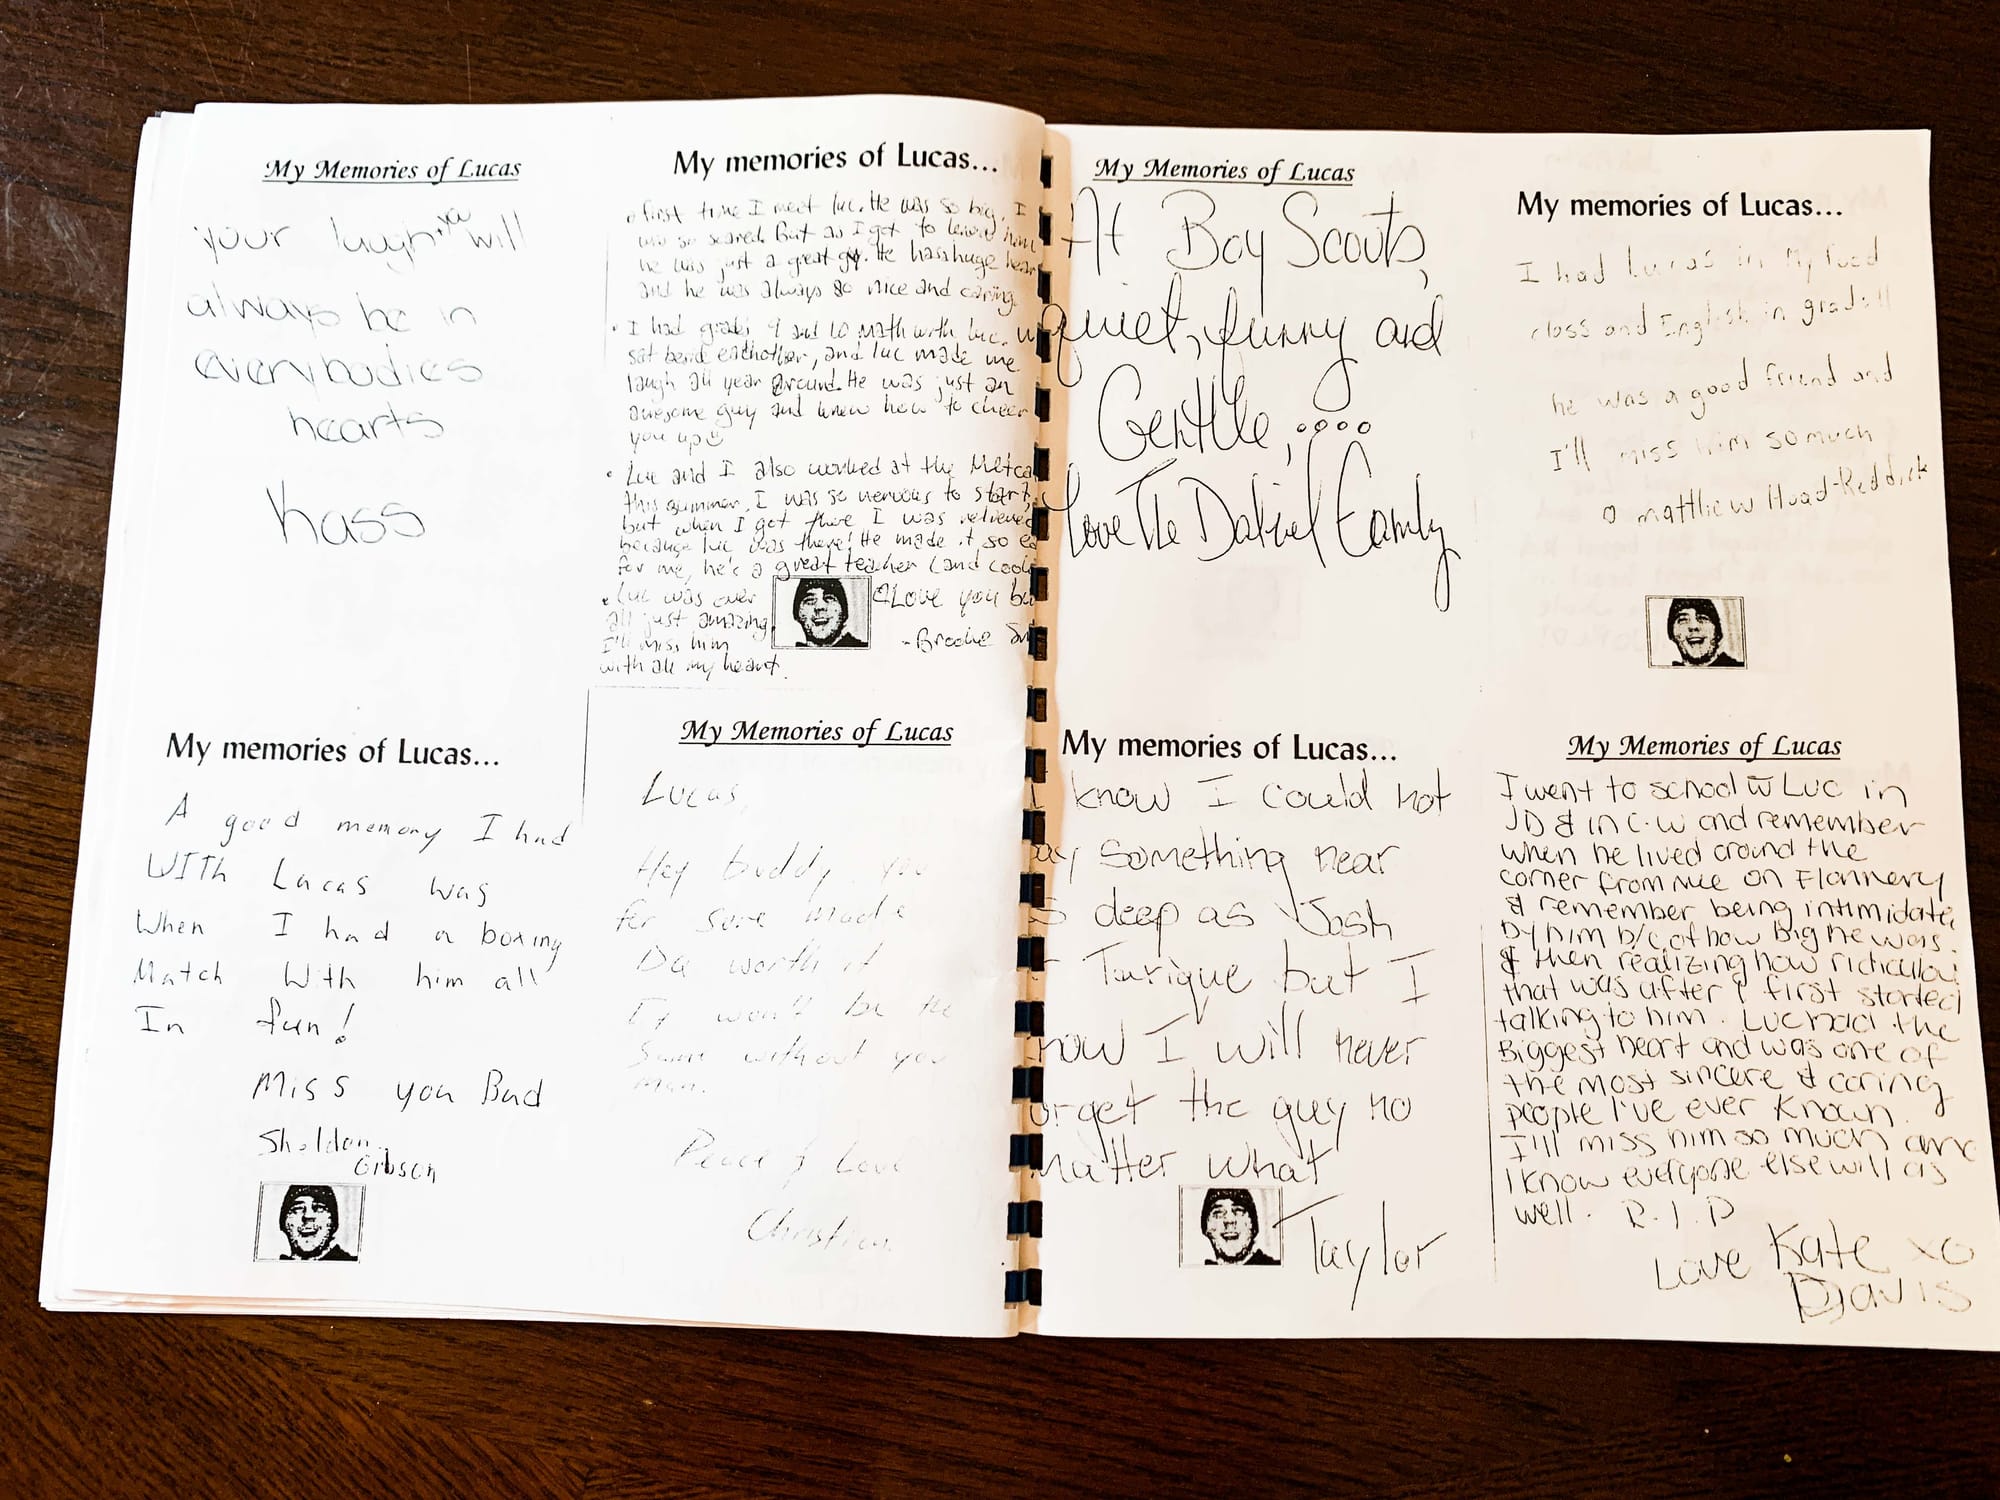 My Memories of Lucas
your laugh + you will
always be in
everybodies
hearts
Kass
My memories of Lucas...
first time I meet luc. He was so big, I
was so scared. But as I got to know him
he was just a great guy. He has huge hear
and he was always so nice and caring.
• I had grade 9 and 10 math with luc. w
sat beind eachother, and luc made me
laugh all year around. He was just an
awesome guy and knew how to cheer
you up
• Luc and I also worked at the Metca
this summer, I was so nervous to start,
but when I got there I was relieved
because luc was there! He made it so ea
for me, he's a great teacher (and cook
• Luc was over
all just amazing
I'll miss him
with all my heart.
Love you bu
- Brooke
My memories of Lucas...
A good memory I had
WITh Lucas was
When I had a boxing
Match With him all
In fun!
Miss you Bud
Sheldon
Gibson
My Memories of Lucas
Lucas,
Hey buddy, you
for sure made
Da worth it
It won't be the
Same without you
man.
Peace & Love
Christian
My Memories of Lucas
At Boy Scouts,
quiet, funny and
Gentle,....
Love The Family
My memories of Lucas...
I had Lucas in My food
class and English in grade 11
he was a good friend and
I'll miss him so much
matthew Huad-Reddick
My memories of Lucas...
I know I could not
say something near
as deep as Josh
Tarique but I
know I will never
forget the guy no
matter what
Taylor
My Memories of Lucas
I went to school w̄ Luc in
JD & in C.W and remember
when he lived around the
corner from me on Flannery
& remember being intimidate
by him b/c of how big he was.
& then realizing how ridiculou
that was after I first started
talking to him. Luc had the
Biggest heart and was one of
the most sincere & caring
people I've ever known.
I'll miss him so much and
I know everyone else will as
well. R.I.P
Love Kate xo
Davis